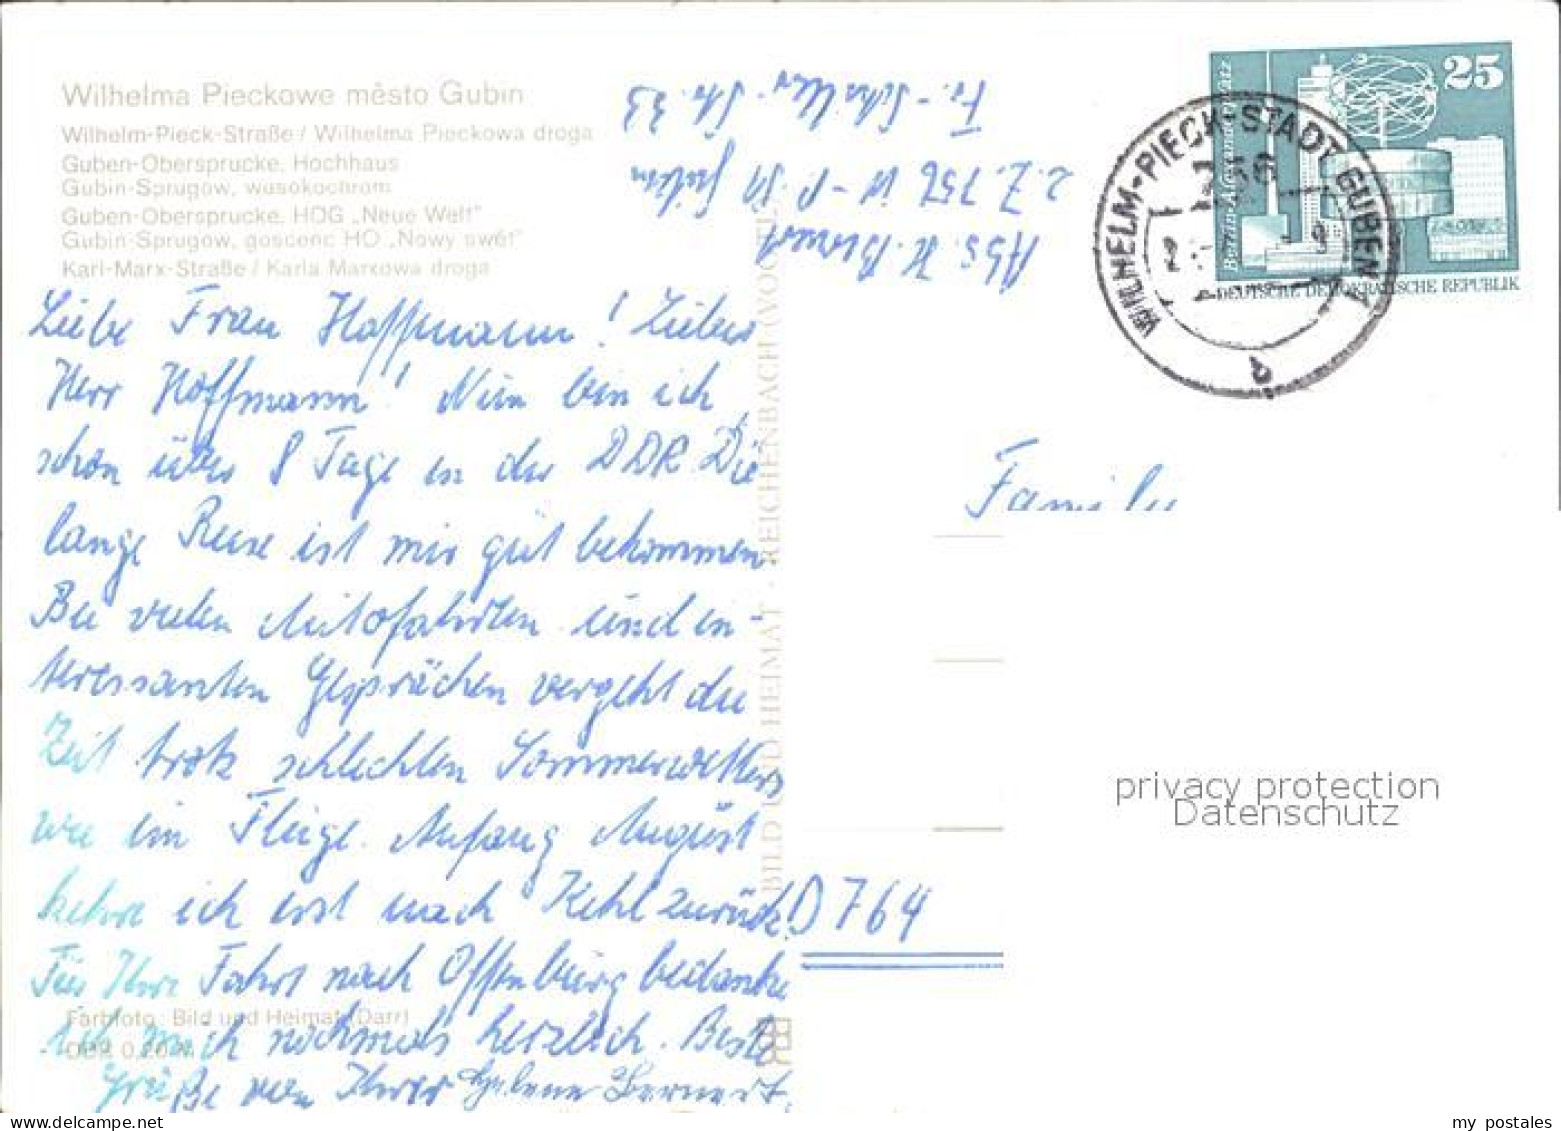 Wilhelma Pieckowe město Gubin
Wilhelm-Pieck-Straße / Wilhelma Pieckowa droga
Guben-Obersprucke, Hochhaus
Gubin-Sprugow, wusokochrom
Guben-Obersprucke, HOG „Neue Welt"
Gubin-Sprugow, gosćenc HO „Nowy swět"
Karl-Marx-Straße / Karla Marxowa droga
Abs. H. Bernert
2. Z. 756 W-P. St Guben
Fr.-Schiller-Str. 33
25
Berlin-Alexanderplatz
DEUTSCHE DEMOKRATISCHE REPUBLIK
WILHELM-PIECK-STADT GUBEN 1
756
b
Liebe Frau Hoffmann! Lieber
Herr Hoffmann! Nun bin ich
schon über 8 Tage in der DDR. Die
lange Reise ist mir gut bekommen
Bei vielen Autofahrten und in-
teressanten Gesprächen vergeht die
Zeit trotz schlechten Sommerwetters
wie im Fluge. Anfang August
kehre ich erst nach Kehl zurück.
Für Ihre Fahrt nach Offenburg bedanke
ich mich nochmals herzlich. Beste
Grüße von Ihrer Helene Bernert.
Farbfoto: Bild und Heimat (Darr)
DDR 0,20 M
BILD UND HEIMAT · REICHENBACH (VOGTL
Familie
D 764
privacy protection
Datenschutz
my postales